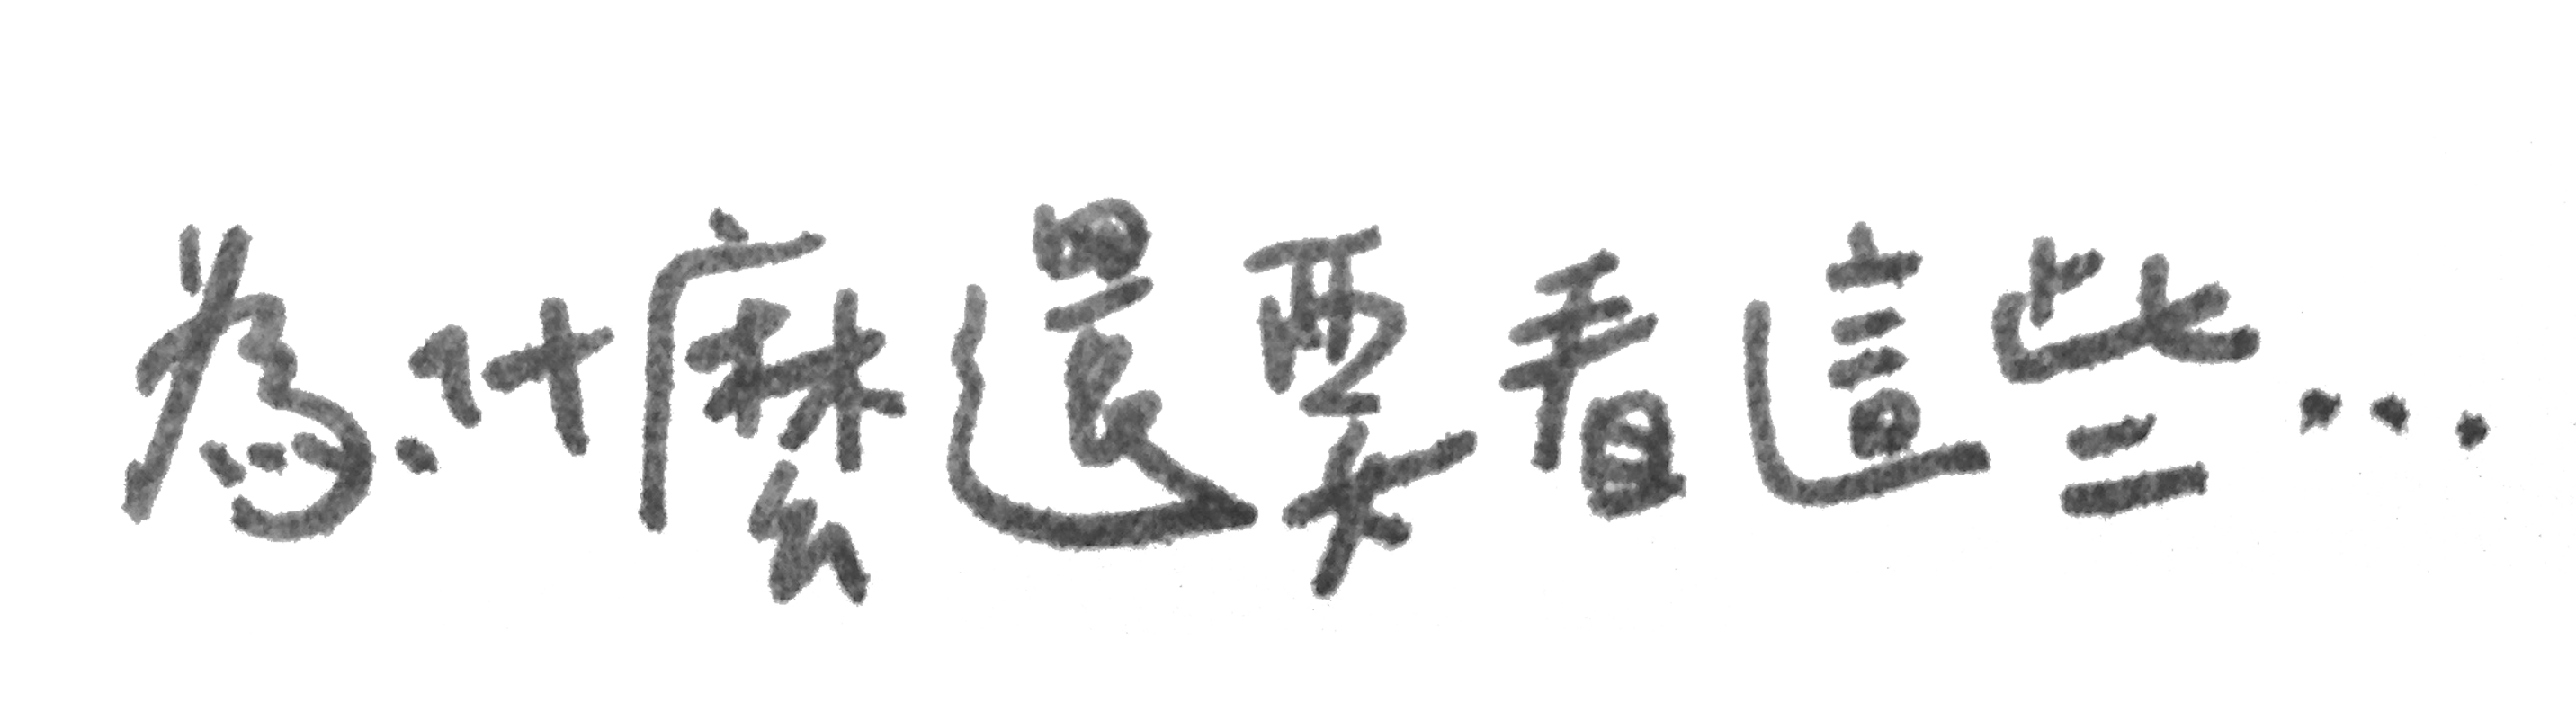 為什麼還要看這些...